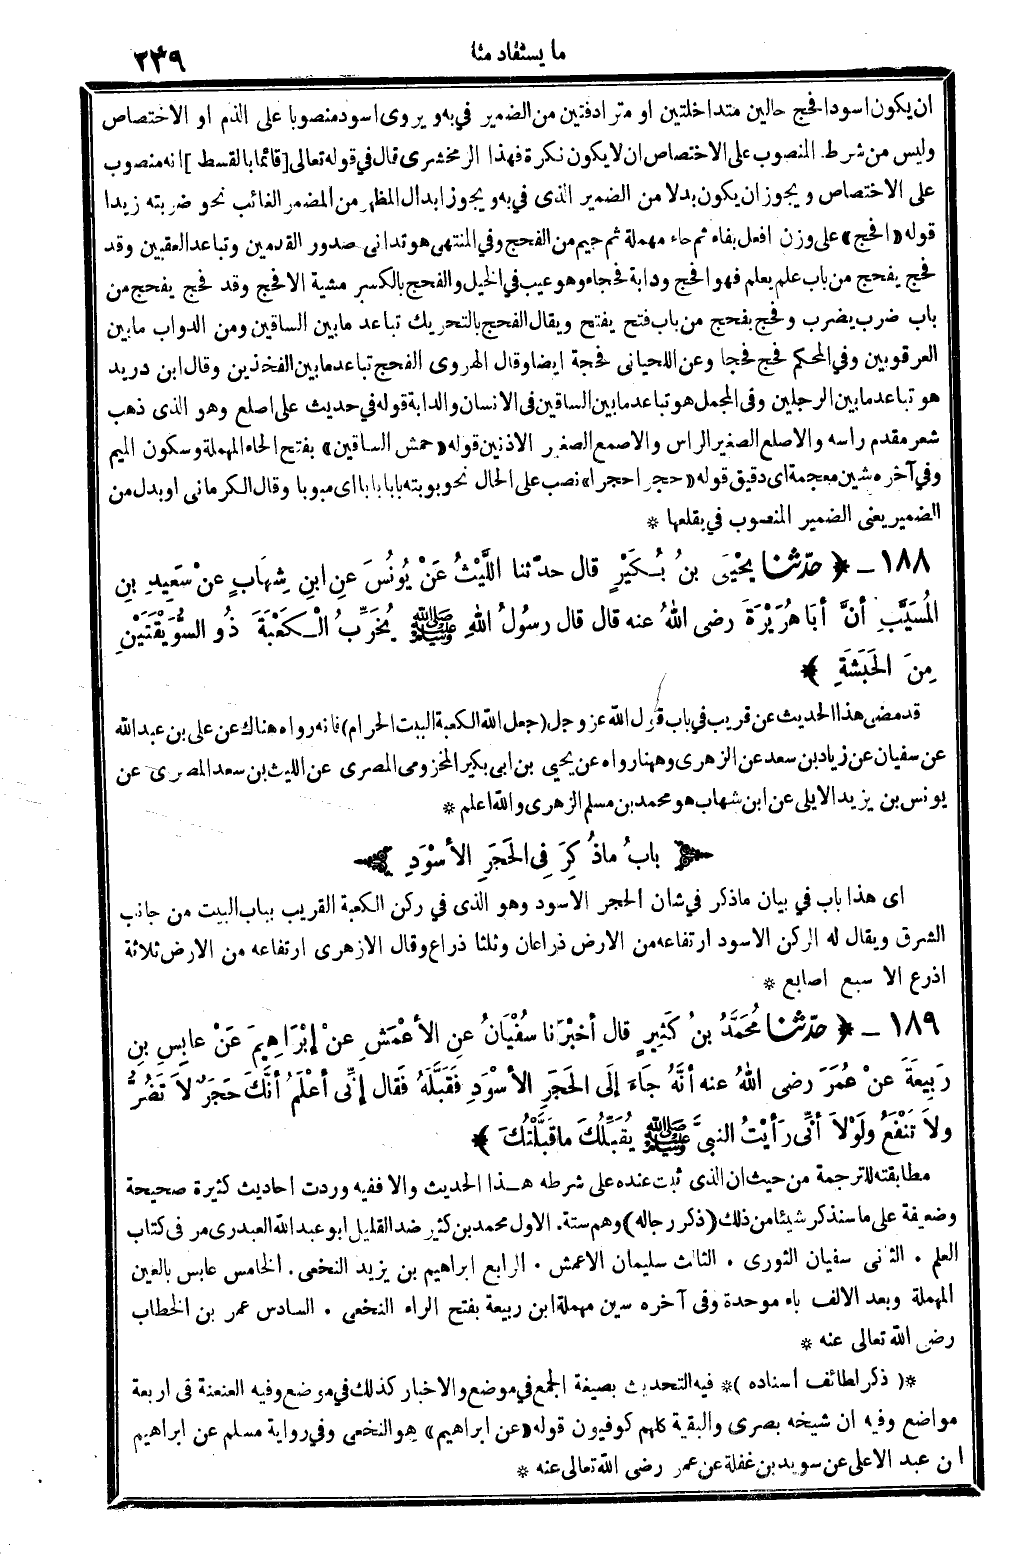 ما يستفاد منه
٢٣٩
ان يكون اسود افحج حالين متداخلتين او مترادفتين من الضمير في به ويروى اسود منصوبا على الذم او الاختصاص
وليس من شرط المنصوب على الاختصاص ان لا يكون نكرة فهذا الزمخشرى قال في قوله تعالى [قائما بالقسط] انه منصوب
على الاختصاص ويجوز ان يكون بدلا من الضمير الذى في به ويجوز ابدال المظهر من المضمر الغائب نحو ضربته زيدا
قوله «افحج» على وزن افعل بفاء ثم حاء مهملة ثم جيم من الفحج وفي المنتهى هو تدانى صدور القدمين وتباعد العقبين وقد
فحج يفحج من باب علم يعلم فهو افحج ودابة فحجاء وهو عيب في الخيل والفحج بالكسر مشية الافحج وقد فحج يفحج من
باب ضرب يضرب وفحج يفحج من باب فتح يفتح ويقال الفحج بالتحريك تباعد ما بين الساقين ومن الدواب ما بين
العرقوبين وفي المحكم فحج فحجا وعن اللحيانى فحجة ايضا وقال الهروى الفحج تباعد ما بين الفخذين وقال ابن دريد
هو تباعد ما بين الرجلين وفى المجمل هو تباعد ما بين الساقين فى الانسان والدابة قوله في حديث على اصلع وهو الذى ذهب
شعر مقدم راسه والاصلع الصغير الراس والاصمع الصغير الاذنين قوله «حمش الساقين» بفتح الحاء المهملة وسكون الميم
وفي آخره شين معجمة اى دقيق قوله «حجرا حجرا» نصب على الحال نحو بوبته بابا بابا اى مبوبا وقال الكرمانى او بدل من
الضمير يعنى الضمير المنصوب في يقلعها *
١٨٨ ــ ﴿ حدّثنا يحْيَى بنُ بُكَيْرٍ قال حدّثنا اللَّيْثُ عَنْ يُونُسَ عنِ ابنِ شِهَابٍ عنْ سَعِيدِ بنِ
المُسَيَّبِ أنَّ أبا هُرَيْرَةَ رضى اللهُ عنه قال قال رسُولُ اللهِ ﷺ يُخَرِّبُ الْكَعْبَةَ ذُو السُّوَيْقَتَيْنِ
مِنَ الحَبَشَةِ ﴾
قد مضى هذا الحديث عن قريب في باب قول الله عز وجل (جعل الله الكعبة البيت الحرام) فانه رواه هناك عن على بن عبد الله
عن سفيان عن زياد بن سعد عن الزهرى وههنا رواه عن يحيى بن ابى بكير المخزومى المصرى عن الليث بن سعد المصرى عن
يونس بن يزيد الايلى عن ابن شهاب هو محمد بن مسلم الزهرى والله اعلم *
بابُ ما ذُكِرَ فى الحَجَرِ الأسْوَدِ
اى هذا باب في بيان ما ذكر في شان الحجر الاسود وهو الذى في ركن الكعبة القريب بباب البيت من جانب
الشرق ويقال له الركن الاسود ارتفاعه من الارض ذراعان وثلثا ذراع وقال الازهرى ارتفاعه من الارض ثلاثة
اذرع الا سبع اصابع *
١٨٩ ــ ﴿ حدّثنا مُحَمَّدُ بنُ كَثِيرٍ قال أخبْرَنا سُفْيَانُ عنِ الأعْمَشِ عنْ إبْرَاهِيمَ عَنْ عابِسِ بنِ
رَبِيعَةَ عنْ عُمَرَ رضى اللهُ عنه أنَّهُ جَاءَ إلَى الحَجَرِ الأسْوَدِ فَقَبَّلَهُ فَقال إنِّى أعْلَمُ أنَّكَ حَجَرٌ لاَ تَضُرُّ
ولاَ تَنْفَعُ ولَوْلاَ أنِّى رَأيْتُ النبيَّ ﷺ يُقَبِّلُكَ ما قَبَّلْتُكَ ﴾
مطابقته للترجمة من حيث ان الذى ثبت عنده على شرطه هــذا الحديث والا ففيه وردت احاديث كثيرة صحيحة
وضعيفة على ما سنذكر شيئا من ذلك (ذكر رجاله) وهم ستة. الاول محمد بن كثير ضد القليل ابو عبد الله العبدرى مر فى كتاب
العلم . الثانى سفيان الثورى . الثالث سليمان الاعمش . الرابع ابراهيم بن يزيد النخعى . الخامس عابس بالعين
المهملة وبعد الالف باء موحدة وفى آخره سين مهملة ابن ربيعة بفتح الراء النخعى . السادس عمر بن الخطاب
رضى الله تعالى عنه *
*( ذكر لطائف أسناده )* فيه التحديث بصيغة الجمع في موضع والاخبار كذلك في موضع وفيه العنعنة فى اربعة
مواضع وفيه ان شيخه بصرى والبقية كلهم كوفيون قوله «عن ابراهيم» هو النخعى وفي رواية مسلم عن ابراهيم
ابن عبد الاعلى عن سويد بن غفلة عن عمر رضى الله تعالى عنه *